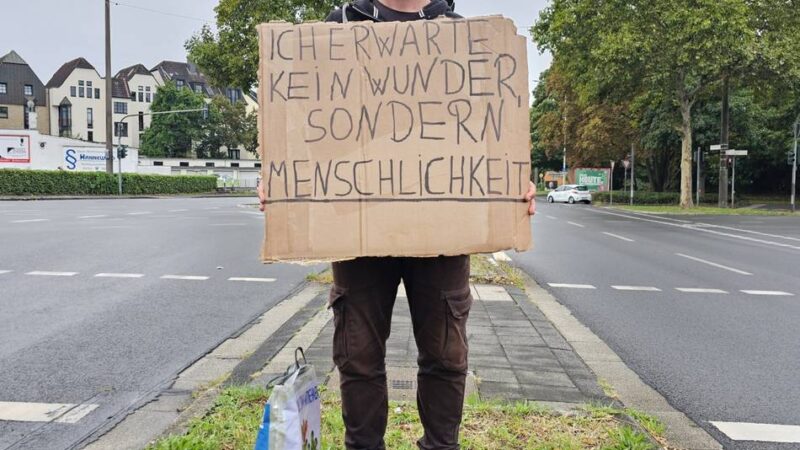 ICH ERWARTE
KEIN WUNDER,
SONDERN
MENSCHLICHKEIT
§